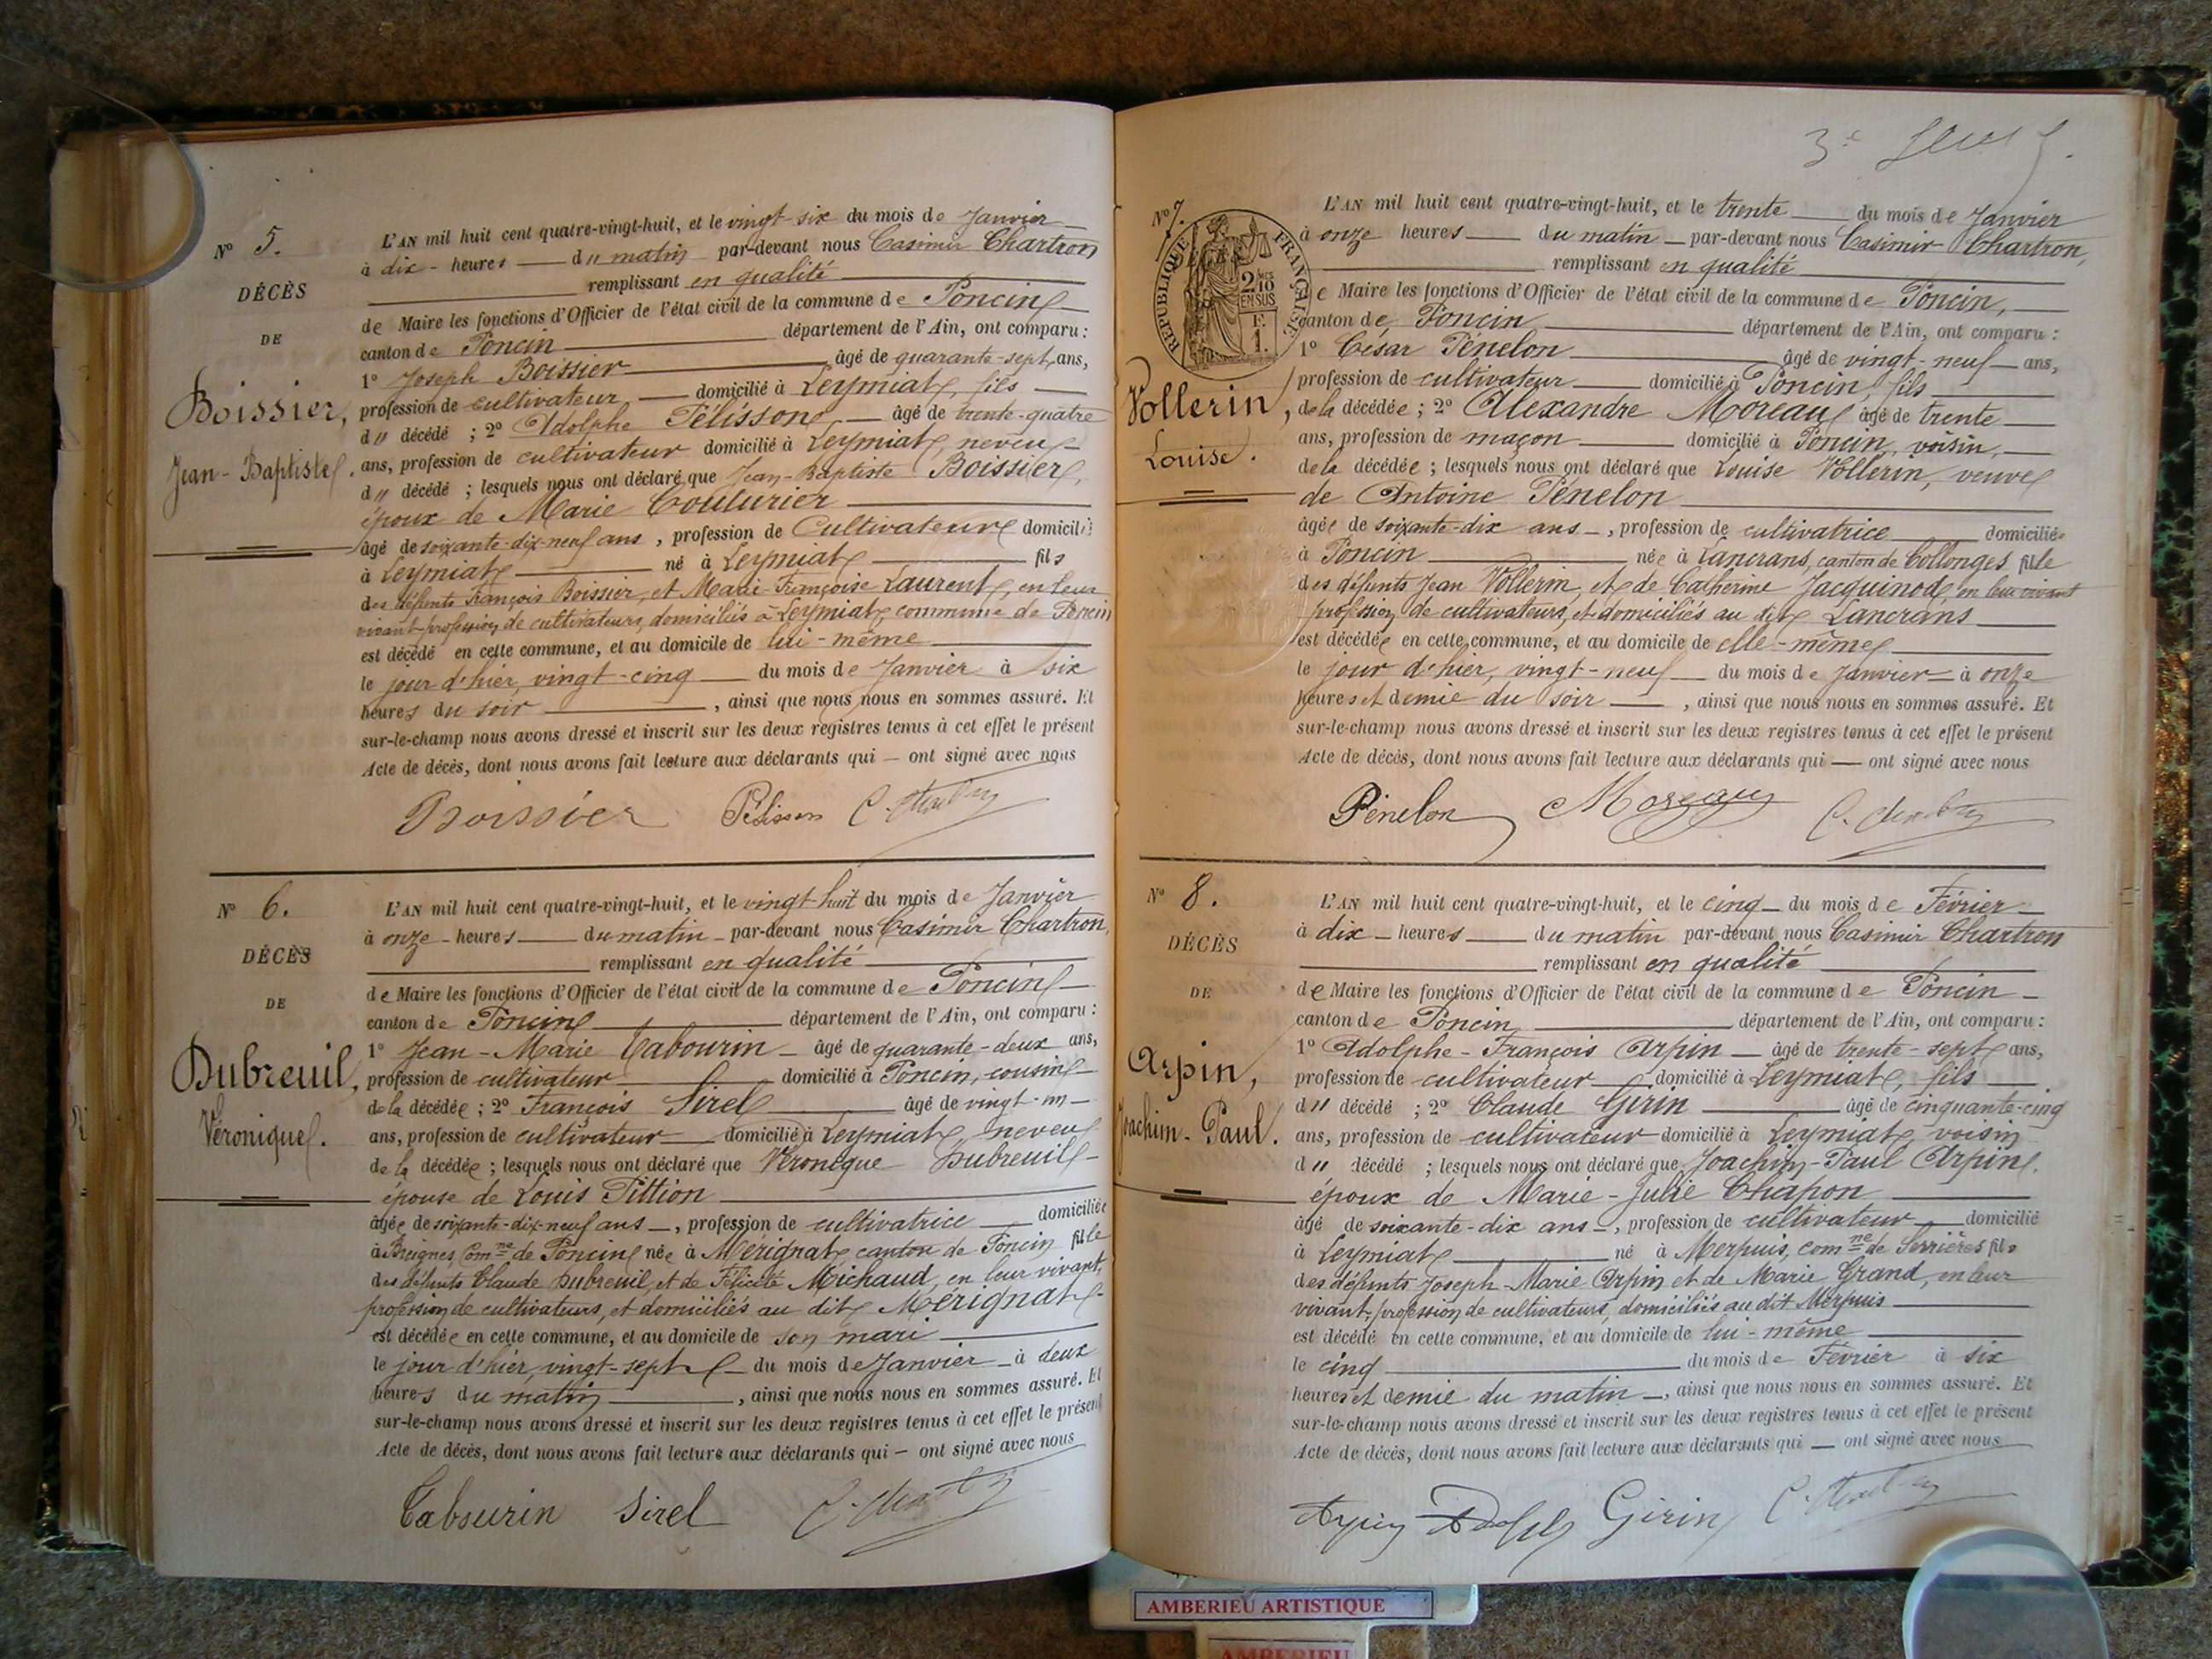 N° 5.
DÉCÈS
DE
Boissier,
Jean-Baptiste.
L'AN mil huit cent quatre-vingt-huit, et le vingt-six du mois de Janvier
à dix - heures du matin par-devant nous Casimir Chartron
remplissant en qualité
de Maire les fonctions d'Officier de l'état civil de la commune de Poncin
canton de Poncin département de l'Ain, ont comparu :
1° Joseph Boissier âgé de quarante-sept ans,
profession de cultivateur domicilié à Leymiat, fils
du décédé ; 2° Adolphe Pélisson âgé de trente-quatre
ans, profession de cultivateur domicilié à Leymiat, neveu
du décédé ; lesquels nous ont déclaré que Jean-Baptiste Boissier,
époux de Marie Couturier
âgé de soixante-dix-neuf ans, profession de Cultivateur domicilié
à Leymiat né à Leymiat fils
des défunts François Boissier, et Marie-Françoise Laurent, en leur
vivant profession de cultivateurs, domiciliés à Leymiat, commune de Poncin
est décédé en cette commune, et au domicile de lui-même
le jour d'hier, vingt-cinq du mois de Janvier à six
heures du soir, ainsi que nous nous en sommes assuré. Et
sur-le-champ nous avons dressé et inscrit sur les deux registres tenus à cet effet le présent
Acte de décès, dont nous avons fait lecture aux déclarants qui — ont signé avec nous
Boissier Pélisson
N° 6.
DÉCÈS
DE
Dubreuil,
Véronique.
L'AN mil huit cent quatre-vingt-huit, et le vingt huit du mois de Janvier
à onze - heures du matin - par-devant nous Casimir Chartron,
remplissant en qualité
de Maire les fonctions d'Officier de l'état civil de la commune de Poncin
canton de Poncin département de l'Ain, ont comparu :
1° Jean-Marie Tabourin âgé de quarante-deux ans,
profession de cultivateur domicilié à Poncin, cousin
de la décédée ; 2° François Sirel âgé de vingt-un
ans, profession de cultivateur domicilié à Leymiat, neveu
de la décédée ; lesquels nous ont déclaré que Véronique Dubreuil
épouse de Louis Pittion
âgée de soixante-dix-neuf ans, profession de cultivatrice domiciliée
à Breignes, Comne de Poncin née à Mérignat canton de Poncin fille
des défunts Claude Dubreuil, et de Félicité Michaud, en leur vivant,
profession de cultivateurs, et domiciliés au dit Mérignat
est décédée en cette commune, et au domicile de son mari
le jour d'hier, vingt-sept du mois de Janvier à deux
heures du matin, ainsi que nous nous en sommes assuré. Et
sur-le-champ nous avons dressé et inscrit sur les deux registres tenus à cet effet le présent
Acte de décès, dont nous avons fait lecture aux déclarants qui — ont signé avec nous
Tabourin Sirel
N° 7.
RÉPUBLIQUE FRANÇAISE
2/10
EN SUS
F.
1.
Vollerin,
Louise.
L'AN mil huit cent quatre-vingt-huit, et le trente du mois de Janvier
à onze heures du matin par-devant nous Casimir Chartron,
remplissant en qualité
de Maire les fonctions d'Officier de l'état civil de la commune de Poncin,
canton de Poncin département de l'Ain, ont comparu :
1° César Pénelon âgé de vingt-neuf ans,
profession de cultivateur domicilié à Poncin, fils
de la décédée ; 2° Alexandre Moreau âgé de trente
ans, profession de maçon domicilié à Poncin, voisin,
de la décédée ; lesquels nous ont déclaré que Louise Vollerin, veuve
de Antoine Pénelon
âgée de soixante-dix ans, profession de cultivatrice domiciliée
à Poncin née à Lancrans, canton de Collonges fille
des défunts Jean Vollerin, et de Catherine Jacquinod, en leur vivant
profession de cultivateurs, et domiciliés au dit Lancrans
est décédée en cette commune, et au domicile de elle-même
le jour d'hier, vingt-neuf du mois de Janvier à onze
heures et demie du soir, ainsi que nous nous en sommes assuré. Et
sur-le-champ nous avons dressé et inscrit sur les deux registres tenus à cet effet le présent
Acte de décès, dont nous avons fait lecture aux déclarants qui — ont signé avec nous
Pénelon Moreau
N° 8.
DÉCÈS
DE
Arpin,
Joachim-Paul.
L'AN mil huit cent quatre-vingt-huit, et le cinq du mois de Février
à dix heures du matin par-devant nous Casimir Chartron
remplissant en qualité
de Maire les fonctions d'Officier de l'état civil de la commune de Poncin
canton de Poncin, département de l'Ain, ont comparu :
1° Adolphe-François Arpin âgé de trente-sept ans,
profession de cultivateur domicilié à Leymiat, fils
du décédé ; 2° Claude Girin âgé de cinquante-cinq
ans, profession de cultivateur domicilié à Leymiat, voisin
du décédé ; lesquels nous ont déclaré que Joachim-Paul Arpin.
époux de Marie-Julie Chapon
âgé de soixante-dix ans, profession de cultivateur domicilié
à Leymiat né à Merpuis, comne de Serrières fils
des défunts Joseph-Marie Arpin et de Marie Grand, en leur
vivant, profession de cultivateurs, domiciliés au dit Merpuis
est décédé en cette commune, et au domicile de lui-même
le cinq du mois de Février à six
heures et demie du matin, ainsi que nous nous en sommes assuré. Et
sur-le-champ nous avons dressé et inscrit sur les deux registres tenus à cet effet le présent
Acte de décès, dont nous avons fait lecture aux déclarants qui — ont signé avec nous
Girin
AMBERIEU ARTISTIQUE
AMBERIEU